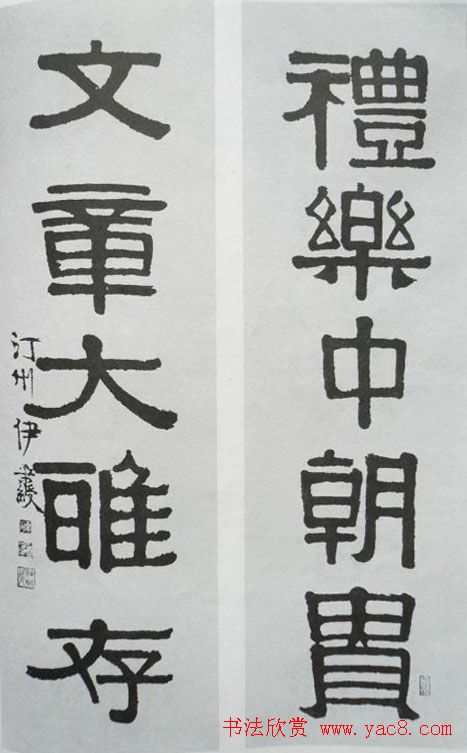 禮樂中朝貴
文章大雅存
汀州伊秉綬
书法欣赏 www.yac8.com